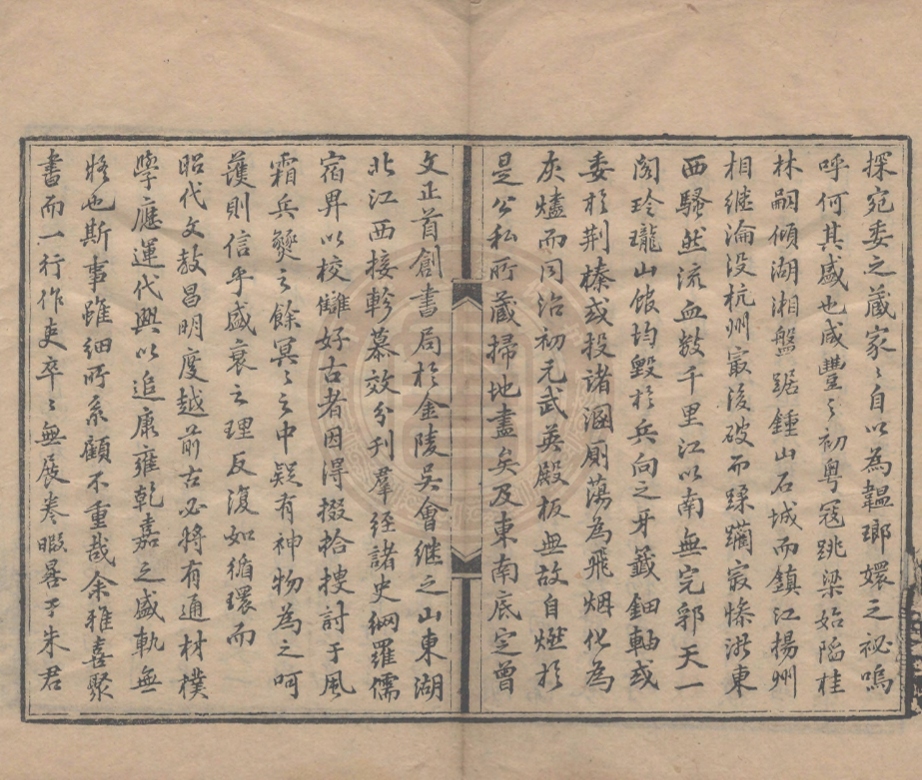 探宛委之藏家〻自以為韞瑯嬛之祕嗚
呼何其盛也咸豐之初粵寇跳梁始陷桂
林嗣傾湖湘盤踞鍾山石城而鎮江揚州
相继淪没杭州寂後破而蹂躪寂慘浙東
西騷然流血数千里江以南無完郛天一
閣玲瓏山館均毀於兵向之牙籤鈿軸或
委於荆榛或投诸溷厠蕩為飛烟化為
灰燼而同治初元武英殿板無故自燃於
是公私所藏掃地盡矣及東南底定曾
文正首創書局於金陵吴會继之山東湖
北江西接軫慕效分刊羣經諸史網羅儒
宿畀以校讎好古者因得掇拾搜討于風
霜兵燹之餘冥〻之中疑有神物為之呵
護則信乎盛衰之理反復如循環而
昭代文教昌明度越前古必將有通材樸
學應運代興以追康雍乾嘉之盛軌無
疑也斯事雖細所系顧不重哉余雅喜聚
書而一行作吏卒〻無展卷暇晷予朱君